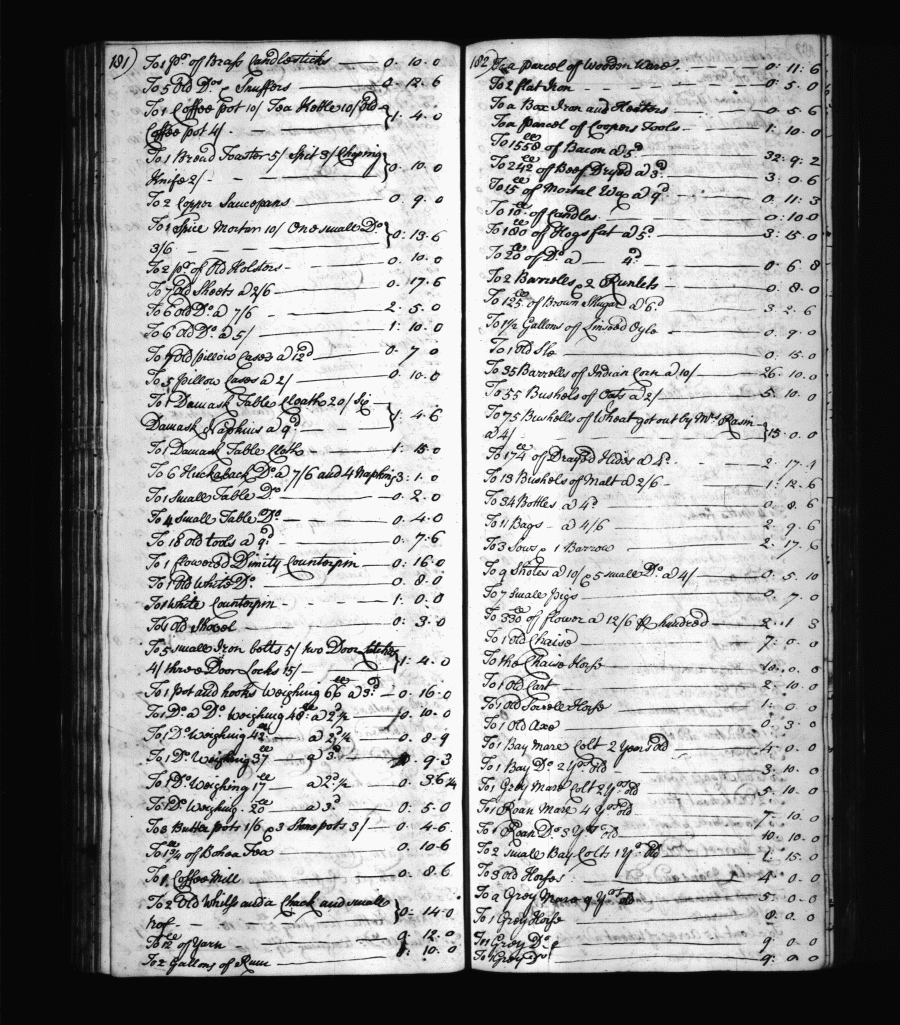 181)
To 1 pr. of Brass Candlesticks 0. 10. 0
To 5 Old Dos. & Snuffers 0. 12. 6
To 1 Coffee pot 10/ Tea Kettle 10/ Old
Coffee pot 4/ 1. 4. 0
To 1 Bread Toaster 5/ Spit 3/ Choping
Knife 2/ 0. 10. 0
To 2 Copper Saucepans 0. 9. 0
To 1 Spice Mortar 10/ One small Do.
3/6 0: 13. 6
To 2 pr. of Old Holsters 0. 10. 0
To 7 Old Sheets a 2/6 0. 17. 6
To 6 old Do. a 7/6 2. 5. 0
To 6 Old Do. a 5/ 1: 10. 0
To 7 Old pillow Cases a 12d 0. 7 0
To 5 Pillow Cases a 2/ 0. 10. 0
To 1 Damask Table Cloath 20/ Six
Damask Napkins a 9d. 1: 4. 6
To 1 Damask Table Cloth 1: 15. 0
To 6 Huckaback Do. a 7/6 and 4 Napkins 3: 1. 0
To 1 Small Table Do. 0. 2. 0
To 4 Small Table Do. 0. 4. 0
To 18 old tools a 9d. 0. 7. 6
To 1 flowered Dimity Counterpin 0: 16. 0
To 1 Old White Do. 0. 8. 0
To 1 White Counterpin 1: 0. 0
To 1 Old Shovel 0: 3. 0
To 5 small Iron bolts 5/ two Door Latches
4/ three Door Locks 15/ 1: 4. 0
To 1 pot and hooks Weighing 66 a 3d. 0. 16. 0
To 1 Do. a Do. Weighing 48 a 2d.½ 0. 10. 0
To 1 Do. Weighing 42 a 2d.½ 0. 8. 9
To 1 Do. Weighing 37 a 3d. 0. 9. 3
To 1 Do. Weighing 17 a 2d.½ 0: 3. 6¼
To 1 Do. Weighing 20 a 3d. 0: 5. 0
To 3 Butter pots 1/6 & 3 Stone pots 3/ 0. 4. 6
To 1¾ of Bohea Tea 0. 10. 6
To 1 Coffee Mill 0. 8. 6
To 2 Old Whels and a Chack and small
0: 14. 0
To 12 of Yarn 0. 12. 0
To 2 Gallons of Rum 10. 0
182)
To a parcel of Wooden Ware 0: 11: 6
To 2 flat Iron 0: 5. 0
To a Box Iron and Heaters 0. 5. 6
To a parcel of Coopers Tools 1: 10. 0
To 1558 of Bacon a 5d. 32: 9: 2
To 242 of Beef Dryed a 3d. 3: 0. 6
To 15 of Mortal Wax a 9d. 0. 11: 3
To 10 of Candles 0: 10. 0
To 180 of Hogs fat a 5d. 3: 15. 0
To 20 of Do. a 4d. 0. 6. 8
To 2 Barrells & 2 Runlets 0. 8. 0
To 125 of Brown Shugar a 6d. 3. 2. 6
To 1½ Gallons of Linseed Oyle 0. 9. 0
To 1 Old Sloe 0. 15. 0
To 35 Barrells of Indian Corn a 10/ 26. 10. 0
To 55 Bushels of Oats a 2/ 5. 10. 0
To 75 Bushells of Wheat got out by Mrs. Rasin
a 4/ 15. 0. 0
To 174 of Drayed Hides a 4d. 2: 17. 4
To 13 Bushels of Malt a 2/6 1: 12. 6
To 34 Bottles a 4d. 0. 8. 6
To 11 Bags a 4/6 2. 9. 6
To 3 Sows & 1 Barrow 2. 17. 6
To 9 Shotes a 10/ & 5 small Do. a 4/ 0. 5. 10
To 7 small pigs 0. 7. 0
To 330 of flower a 12/6 P hundred 2. 1 3
To 1 Old Chaise 7: 0. 0
To the Chaise Horse 10. 0. 0
To 1 Old Cart 2: 10. 0
To 1 Old Sorrell Horse 1: 0. 0
To 1 Old Axe 0. 3. 0
To 1 Bay Mare Colt 2 Years old 4. 0. 0
To 1 Bay Do. 2 yrs. old 3: 10. 0
To 1 Grey Mare Colt 2 yrs. old 5. 10. 0
To 1 Roan Mare 4 yrs. old 7. 10. 0
To 1 Roan Do. 3 yrs. old 10. 10. 0
To 2 small Bay Colts 1 yr. old 1: 15. 0
To 3 old Horses 4. 0. 0
To a Grey Mare 9 yrs. old 5. 0. 0
To 1 Grey Horse 8. 0. 0
To 1 Grey Do. 9. 0. 0
To 1 Grey Do. 9: 0. 0